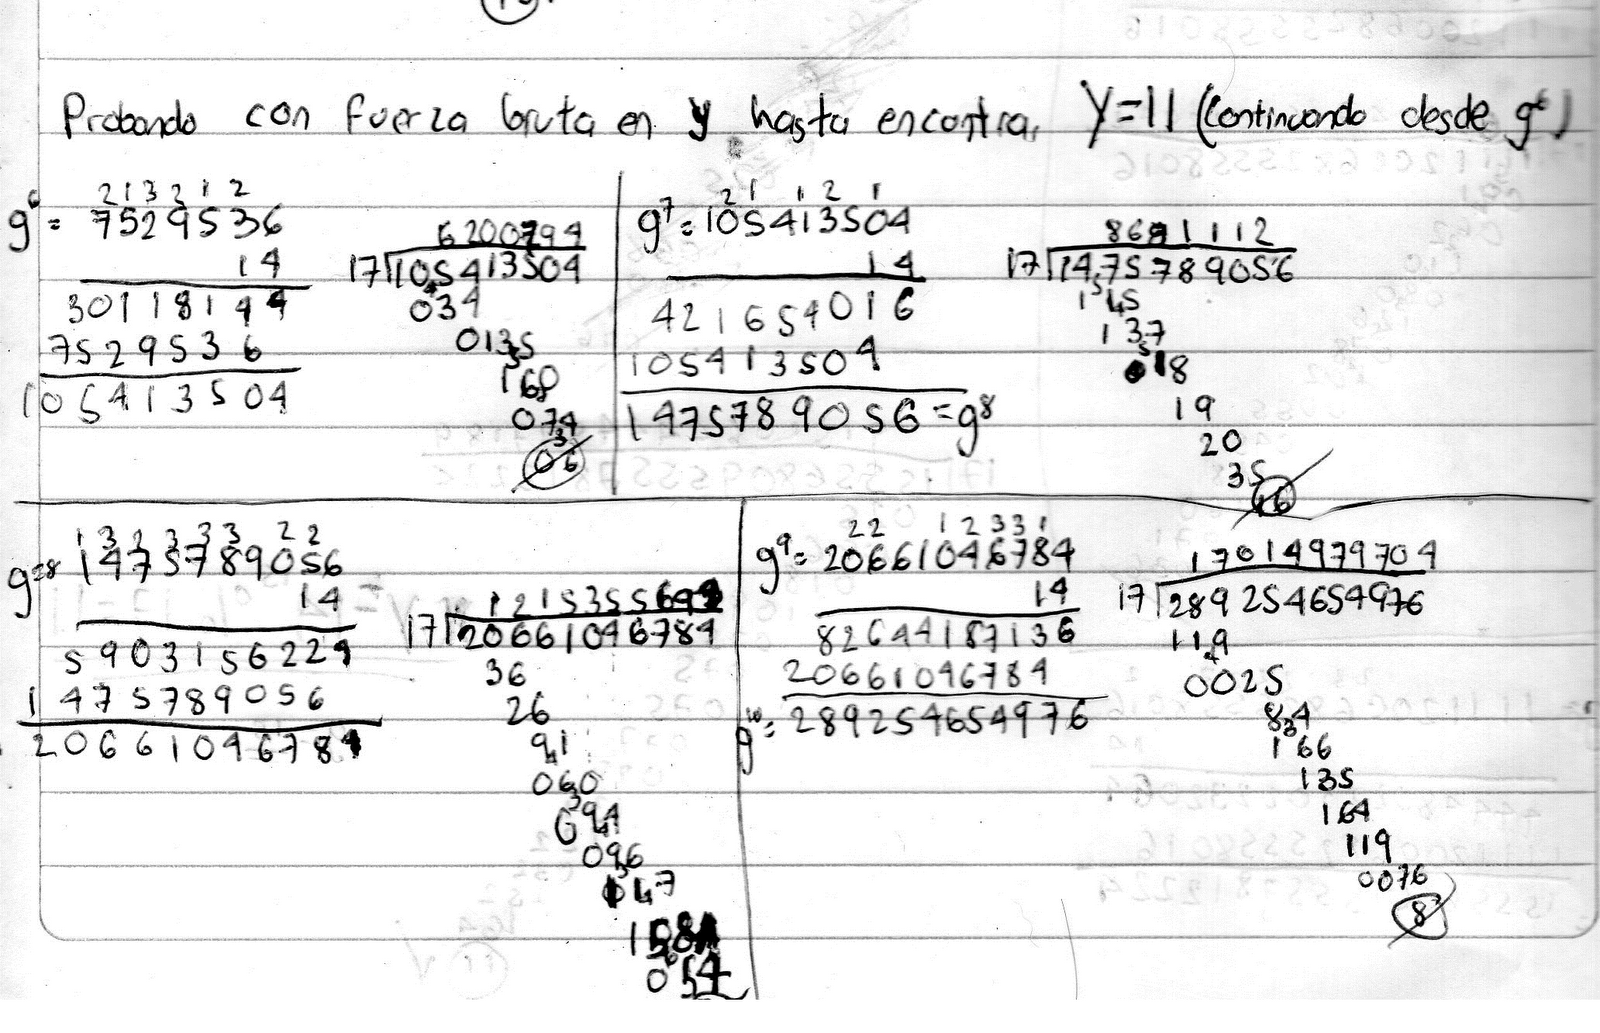 Probando con fuerza bruta en y hasta encontrar Y=11 (Continuando desde g⁶)
g⁶=
213212
7529536
14
30118144
7529536
105413504
6200794
17 105413504
034
0135
160
074
06
21 121
g⁷=105413504
14
421654016
105413504
1475789056=g⁸
1475789056
145
137
018
19
20
35
16
132333 22
g=8 1475789056
14
5903156224
1475789056
20661046784
17 20661046784
36
26
91
060
094
096
22 12331
g⁹=20661046784
14
82644187136
20661046784
g¹⁰=289254654976
17014979704
17 289254654976
119
0025
84
166
135
164
119
0076
8